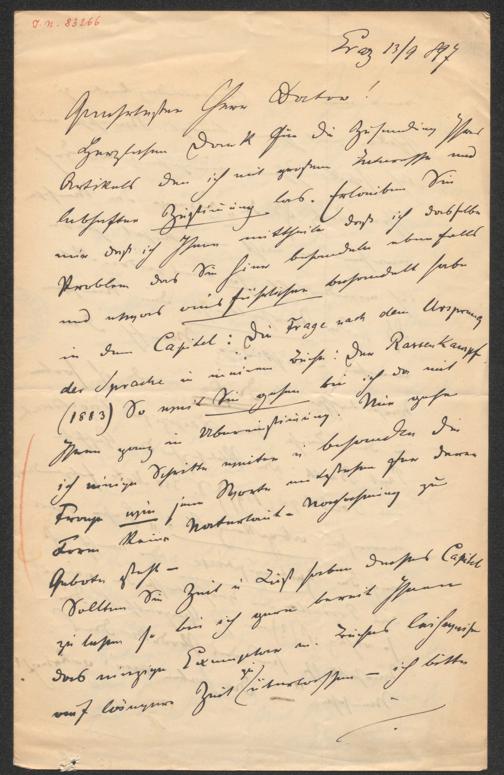 I.N. 83266
Graz 13/9 897
Geehrtester Herr Doctor!
Herzlichen Dank für die Zusendung Ihres
Artikels den ich mit großem Interesse und
lebhafter Zustimmung las. Erlauben Sie
mir daß ich Ihnen mittheile daß ich dasselbe
Problem das Sie hier behandeln ebenfalls
und etwas ausführlicher behandelt habe
in dem Capitel: Die Frage nach dem Ursprung
der Sprache in meinem Buche: Der Rassenkampf
(1883) So weit Sie gehen bin ich da mit
Ihnen ganz in Übereinstimmung. Nur gehe
ich einige Schritte weiter u behandle die
Frage wie jene Worte entstehen für deren
Form keine Naturlaut-Nachahmung zu
Gebote steht –
Sollten Sie Zeit u Lust haben dieses Capitel
zu lesen so bin ich gern bereit Ihnen
das einzige Exemplar m. Buches leihweise
auf längere Zeit zu überlassen – ich bitte